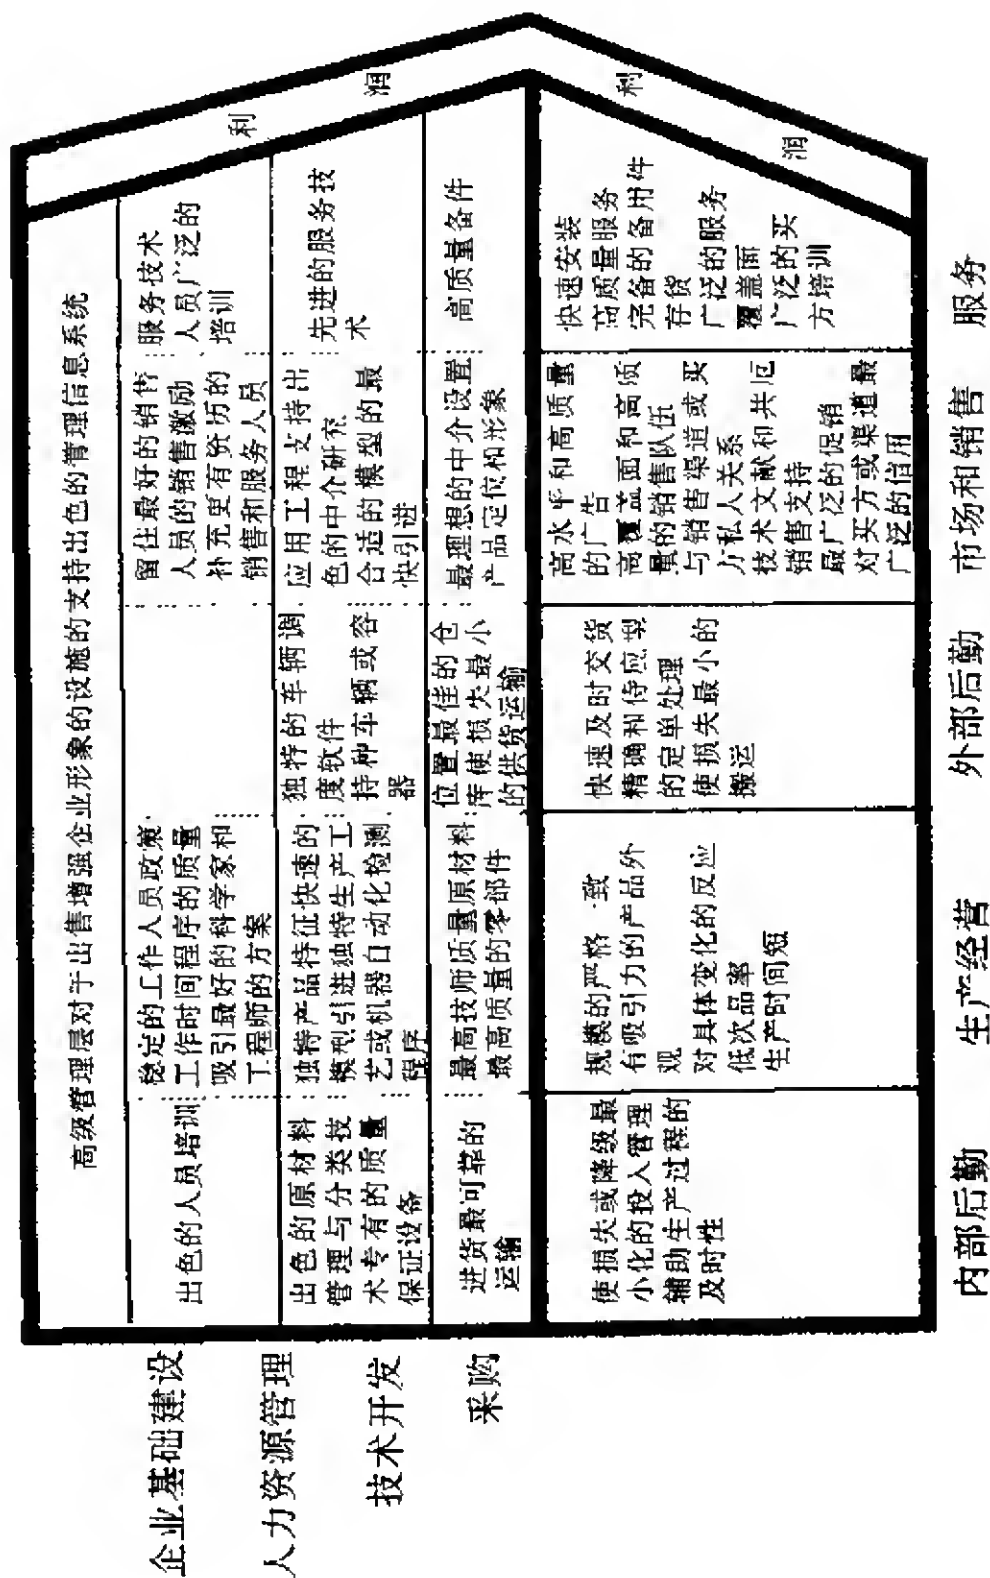 企业基础建设
高级管理层对于出售增强企业形象的设施的支持出色的管理信息系统
人力资源管理
出色的人员培训
稳定的工作人员政策
工作时间程序的质量
吸引最好的科学家和
工程师的方案
留住最好的销售
人员的销售激励
补充更有资历的
销售和服务人员
服务技术
人员广泛的
培训
技术开发
出色的原材料
管理与分类技
术专有的质量
保证设备
独特产品特征快速的
模型引进独特生产工
艺或机器自动化检测
程序
独特的车辆调
度软件
持种车辆或容
器
应用工程支持出
色的中介研究
合适的模型的最
快引进
先进的服务技
术
采购
进货最可靠的
运输
最高技师质量原材料
最高质量的零部件
位置最佳的仓
库使损失最小
的供货运输
最理想的中介设置
产品定位和形象
高质量备件
使损失或降级最
小化的投入管理
辅助生产过程的
及时性
规模的严格一致
有吸引力的产品外
观
对具体变化的反应
低次品率
生产时间短
快速及时交货
精确和侍应型
的定单处理
使损失最小的
搬运
高水平和高质量
的广告
高覆盖面和高质
量的销售队伍
与销售渠道或买
方私人关系
技术文献和共厄
销售支持
最广泛的促销
对买方或渠道最
广泛的信用
快速安装
高质量服务
完备的备用件
存货
广泛的服务
覆盖面
广泛的买
方培训
利
润
利
润
内部后勤
生产经营
外部后勤
市场和销售
服务